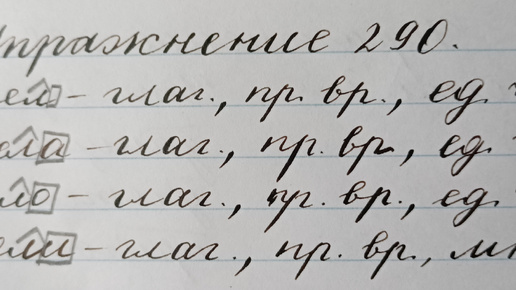 Упражнение 290.
ел – глаг., пр. вр., ед.
ела – глаг., пр. вр., ед.
ло – глаг., пр. вр., ед.
ели – глаг., пр. вр., мн